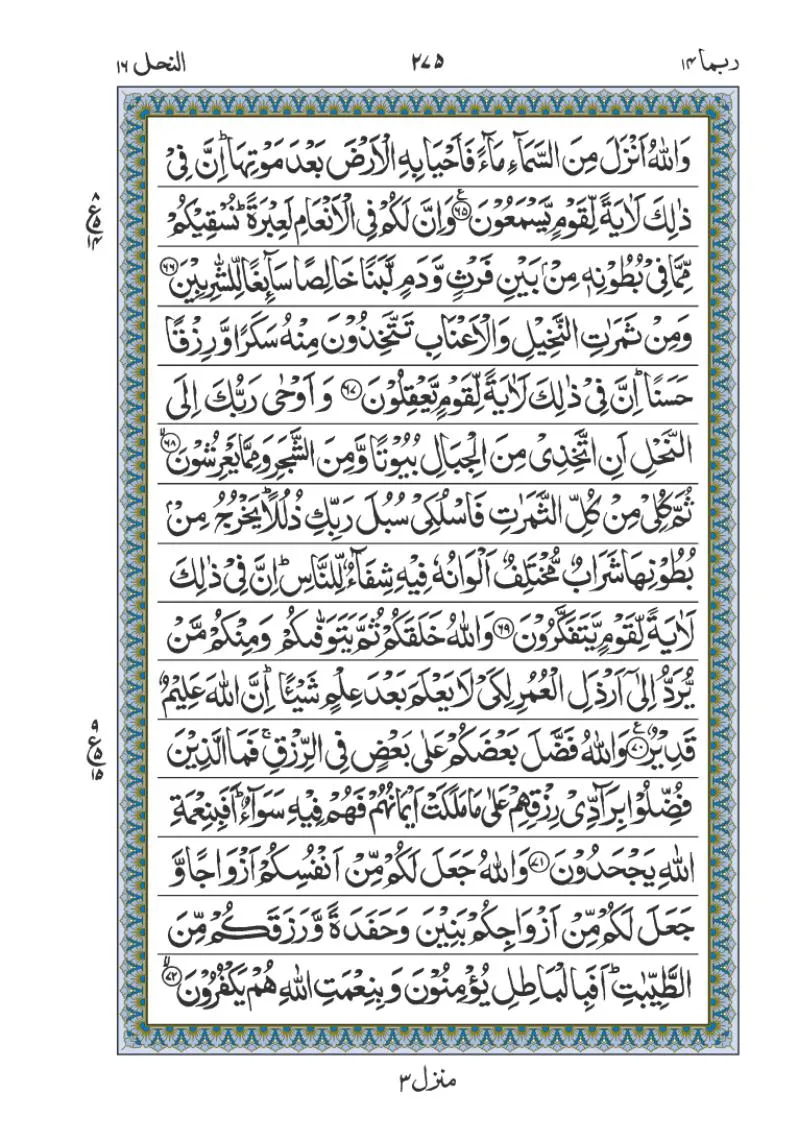 ربما ١٤ ٢٧٥ النحل ١٦
وَاللّٰهُ اَنْزَلَ مِنَ السَّمَآءِ مَآءً فَاَحْيَا بِهِ الْاَرْضَ بَعْدَ مَوْتِهَا ؕ اِنَّ فِیْ
ذٰلِكَ لَاٰيَةً لِّقَوْمٍ يَّسْمَعُوْنَ ﴿٦٥﴾ ع وَاِنَّ لَكُمْ فِی الْاَنْعَامِ لَعِبْرَةً ؕ نُسْقِيْكُمْ
٨ ع ٥ ١٤
مِّمَّا فِیْ بُطُوْنِهٖ مِنْۢ بَيْنِ فَرْثٍ وَّدَمٍ لَّبَنًا خَالِصًا سَآئِغًا لِّلشّٰرِبِيْنَ ﴿٦٦﴾
وَمِنْ ثَمَرٰتِ النَّخِيْلِ وَالْاَعْنَابِ تَتَّخِذُوْنَ مِنْهُ سَكَرًا وَّرِزْقًا
حَسَنًا ؕ اِنَّ فِیْ ذٰلِكَ لَاٰيَةً لِّقَوْمٍ يَّعْقِلُوْنَ ﴿٦٧﴾ وَاَوْحٰی رَبُّكَ اِلَی
النَّحْلِ اَنِ اتَّخِذِیْ مِنَ الْجِبَالِ بُيُوْتًا وَّمِنَ الشَّجَرِ وَمِمَّا يَعْرِشُوْنَ ﴿٦٨﴾ ۙ
ثُمَّ كُلِیْ مِنْ كُلِّ الثَّمَرٰتِ فَاسْلُكِیْ سُبُلَ رَبِّكِ ذُلُلًا ؕ يَخْرُجُ مِنْۢ
بُطُوْنِهَا شَرَابٌ مُّخْتَلِفٌ اَلْوَانُهٗ فِيْهِ شِفَآءٌ لِّلنَّاسِ ؕ اِنَّ فِیْ ذٰلِكَ
لَاٰيَةً لِّقَوْمٍ يَّتَفَكَّرُوْنَ ﴿٦٩﴾ وَاللّٰهُ خَلَقَكُمْ ثُمَّ يَتَوَفّٰىكُمْ ۙ وَمِنْكُمْ مَّنْ
يُّرَدُّ اِلٰۤی اَرْذَلِ الْعُمُرِ لِكَیْ لَا يَعْلَمَ بَعْدَ عِلْمٍ شَيْئًا ؕ اِنَّ اللّٰهَ عَلِيْمٌ
قَدِيْرٌ ﴿٧٠﴾ ع وَاللّٰهُ فَضَّلَ بَعْضَكُمْ عَلٰی بَعْضٍ فِی الرِّزْقِ ۚ فَمَا الَّذِيْنَ
٩ ع ٥ ١٥
فُضِّلُوْا بِرَآدِّیْ رِزْقِهِمْ عَلٰی مَا مَلَكَتْ اَيْمَانُهُمْ فَهُمْ فِيْهِ سَوَآءٌ ؕ اَفَبِنِعْمَةِ
اللّٰهِ يَجْحَدُوْنَ ﴿٧١﴾ وَاللّٰهُ جَعَلَ لَكُمْ مِّنْ اَنْفُسِكُمْ اَزْوَاجًا وَّ
جَعَلَ لَكُمْ مِّنْ اَزْوَاجِكُمْ بَنِيْنَ وَحَفَدَةً وَّرَزَقَكُمْ مِّنَ
الطَّيِّبٰتِ ؕ اَفَبِالْبَاطِلِ يُؤْمِنُوْنَ وَبِنِعْمَتِ اللّٰهِ هُمْ يَكْفُرُوْنَ ﴿٧٢﴾ ۙ
منزل ٣